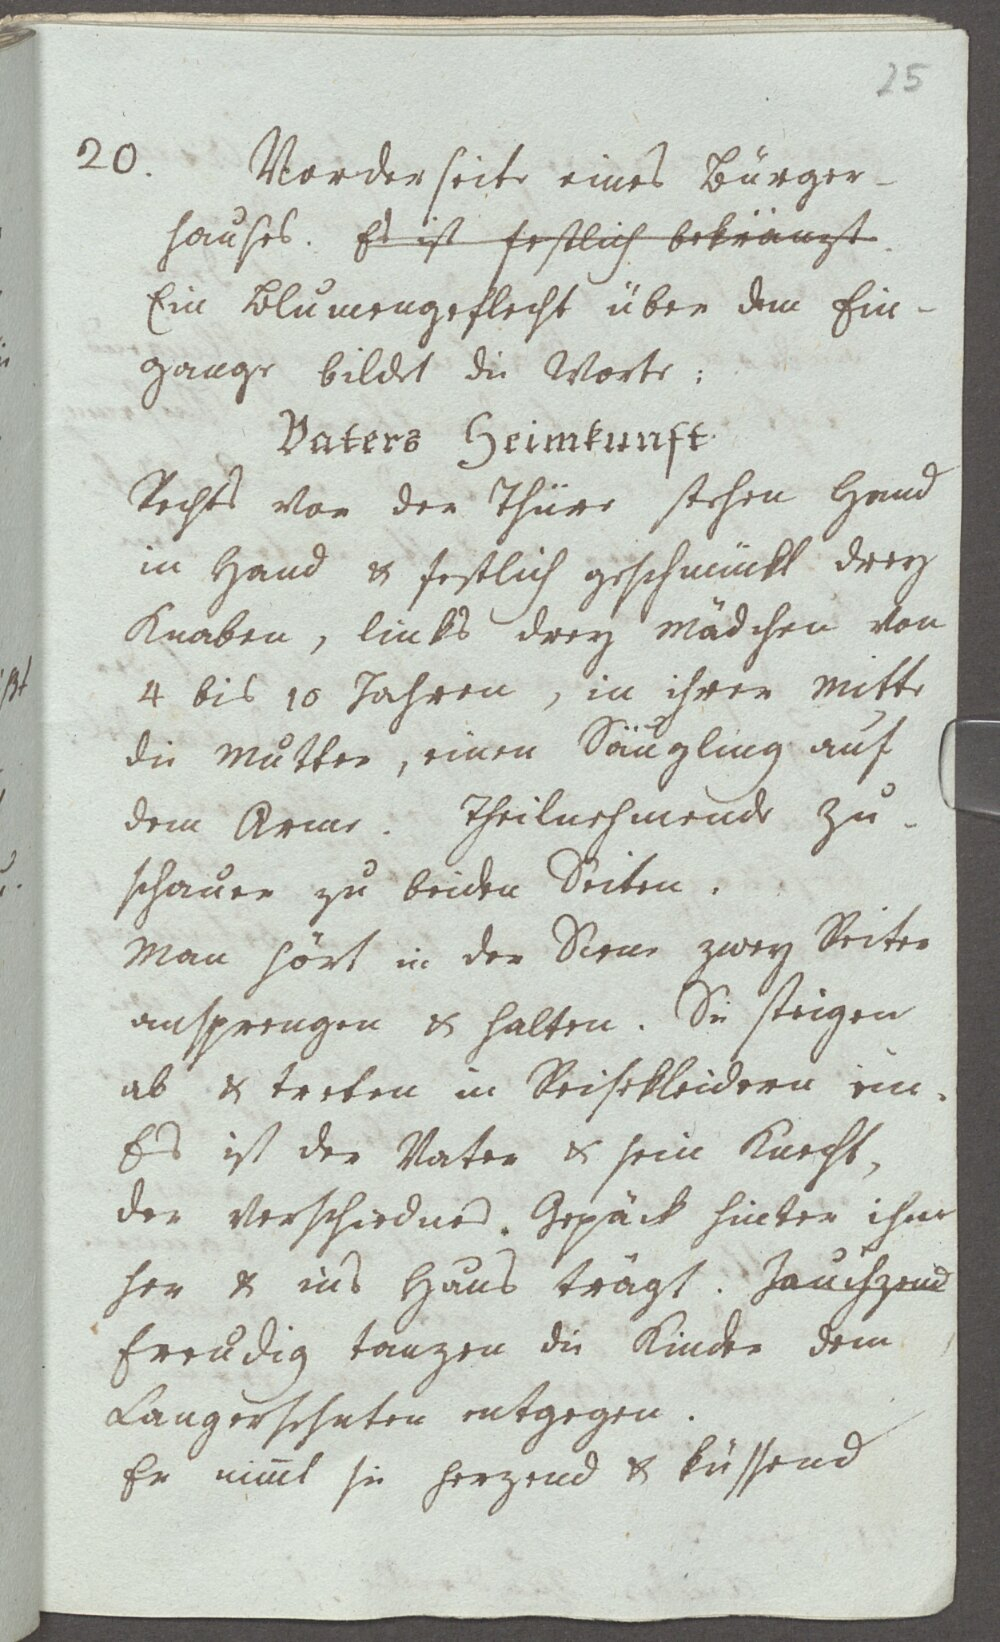 25
20. Vorderseite eines Bürger-
hauses. Es ist festlich bekränzt.
Ein Blumengeflecht über dem Ein-
gange bildet die Worte:
Vaters Heimkunft.
Rechts von der Thüre stehen Hand
in Hand & festlich geschmückt drey
Knaben, links drey Mädchen von
4 bis 10 Jahren, in ihrer Mitte
die Mutter, einen Säugling auf
dem Arme. Theilnehmende Zu-
schauer zu beiden Seiten.
Man hört in der Scene zwey Reiter
ansprengen & halten. Sie steigen
ab & treten in Reisekleidern ein.
Es ist der Vater & sein Knecht,
der verschiednes Gepäck hinter ihm
her & ins Haus trägt. Jauchzend
Freudig tanzen die Kinder dem
Langersehnten entgegen.
Er nim̅t sie herzend & küssend